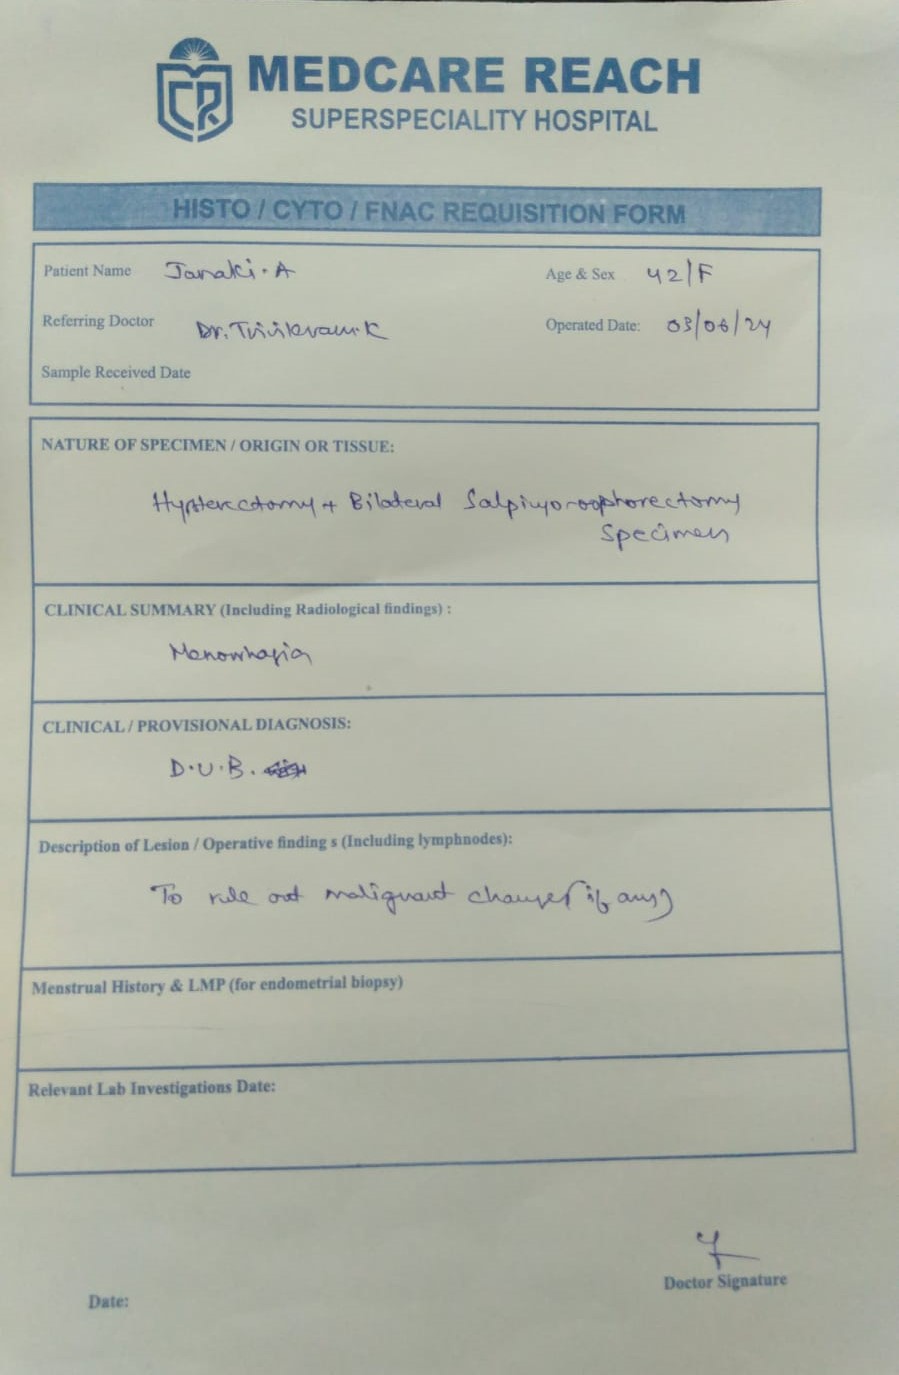 MEDCARE REACH
SUPERSPECIALITY HOSPITAL
HISTO / CYTO / FNAC REQUISITION FORM
Patient Name Janaki. A Age & Sex 42/F
Referring Doctor Dr. K Operated Date: 03/06/24
Sample Received Date
NATURE OF SPECIMEN / ORIGIN OR TISSUE:
Hysterectomy + Bilateral Salpingo-oophorectomy
Specimen
CLINICAL SUMMARY (Including Radiological findings) :
Menorrhagia
CLINICAL / PROVISIONAL DIAGNOSIS:
D.U.B.
Description of Lesion / Operative finding s (Including lymphnodes):
To rule out malignant changes (if any)
Menstrual History & LMP (for endometrial biopsy)
Relevant Lab Investigations Date:
Doctor Signature
Date: